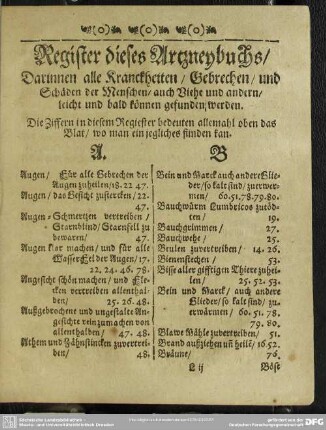 Register dieses Artzneybuchs/
Darinnen alle Kranckheiten / Gebrechen / und
Schäden der Menschen / auch Viehe und andern /
leicht und bald können gefunden werden.
Die Ziffern in diesem Register bedeuten allemahl oben das
Blat / wo man ein jegliches finden kan.
A.
Augen / Für alle Gebrechen der
Augen zuheilen / 18. 22 47.
Augen / das Gesicht zustercken / 22.
47.
Augen-Schmertzen vertreiben /
Starnblind / Starnfell zu
bewaren / 47.
Augen klar machen / und für alle
Wasser Fel der Augen / 17.
22. 24. 46. 78.
Angesicht schön machen / und Fle-
cken vertreiben allenthal-
ben / 25. 26. 48.
Außgebrochene und ungestalte An-
gesichte rein zumachen von
allenthalben / 47. 48.
Athem und Zähnstincken zuvertrei-
ben / 48.
B
Bein und Marck auch andere Glie-
der / so kalt sind / zuerwer-
men / 60. 51. 78. 79. 80.
Bauchwürm Lumbricos zutöd-
ten / 19.
Bauchgrimmen / 27.
Bauchwehe / 25.
Beulen zuvertreiben / 14. 26.
Bienenstechen / 53.
Bisse aller gifftigen Thiere zuhei-
len / 25. 52. 53.
Bein und Marck / auch andere
Glieder / so kalt sind / zu-
erwärmen / 60. 51. 78.
79. 80.
Blawe Mähle zuvertreiben / 51.
Brand außziehen uñ heilē / 16. 52.
Bräune / 76.
L ij Böse